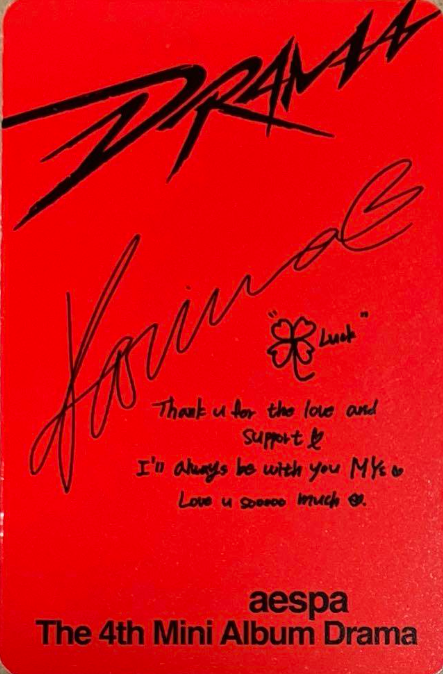 DRAMA
Karina
"🍀 Luck"
Thank u for the love and
support ♡
I'll always be with you MYs ♡
Love u sooooo much ☻.
aespa
The 4th Mini Album Drama